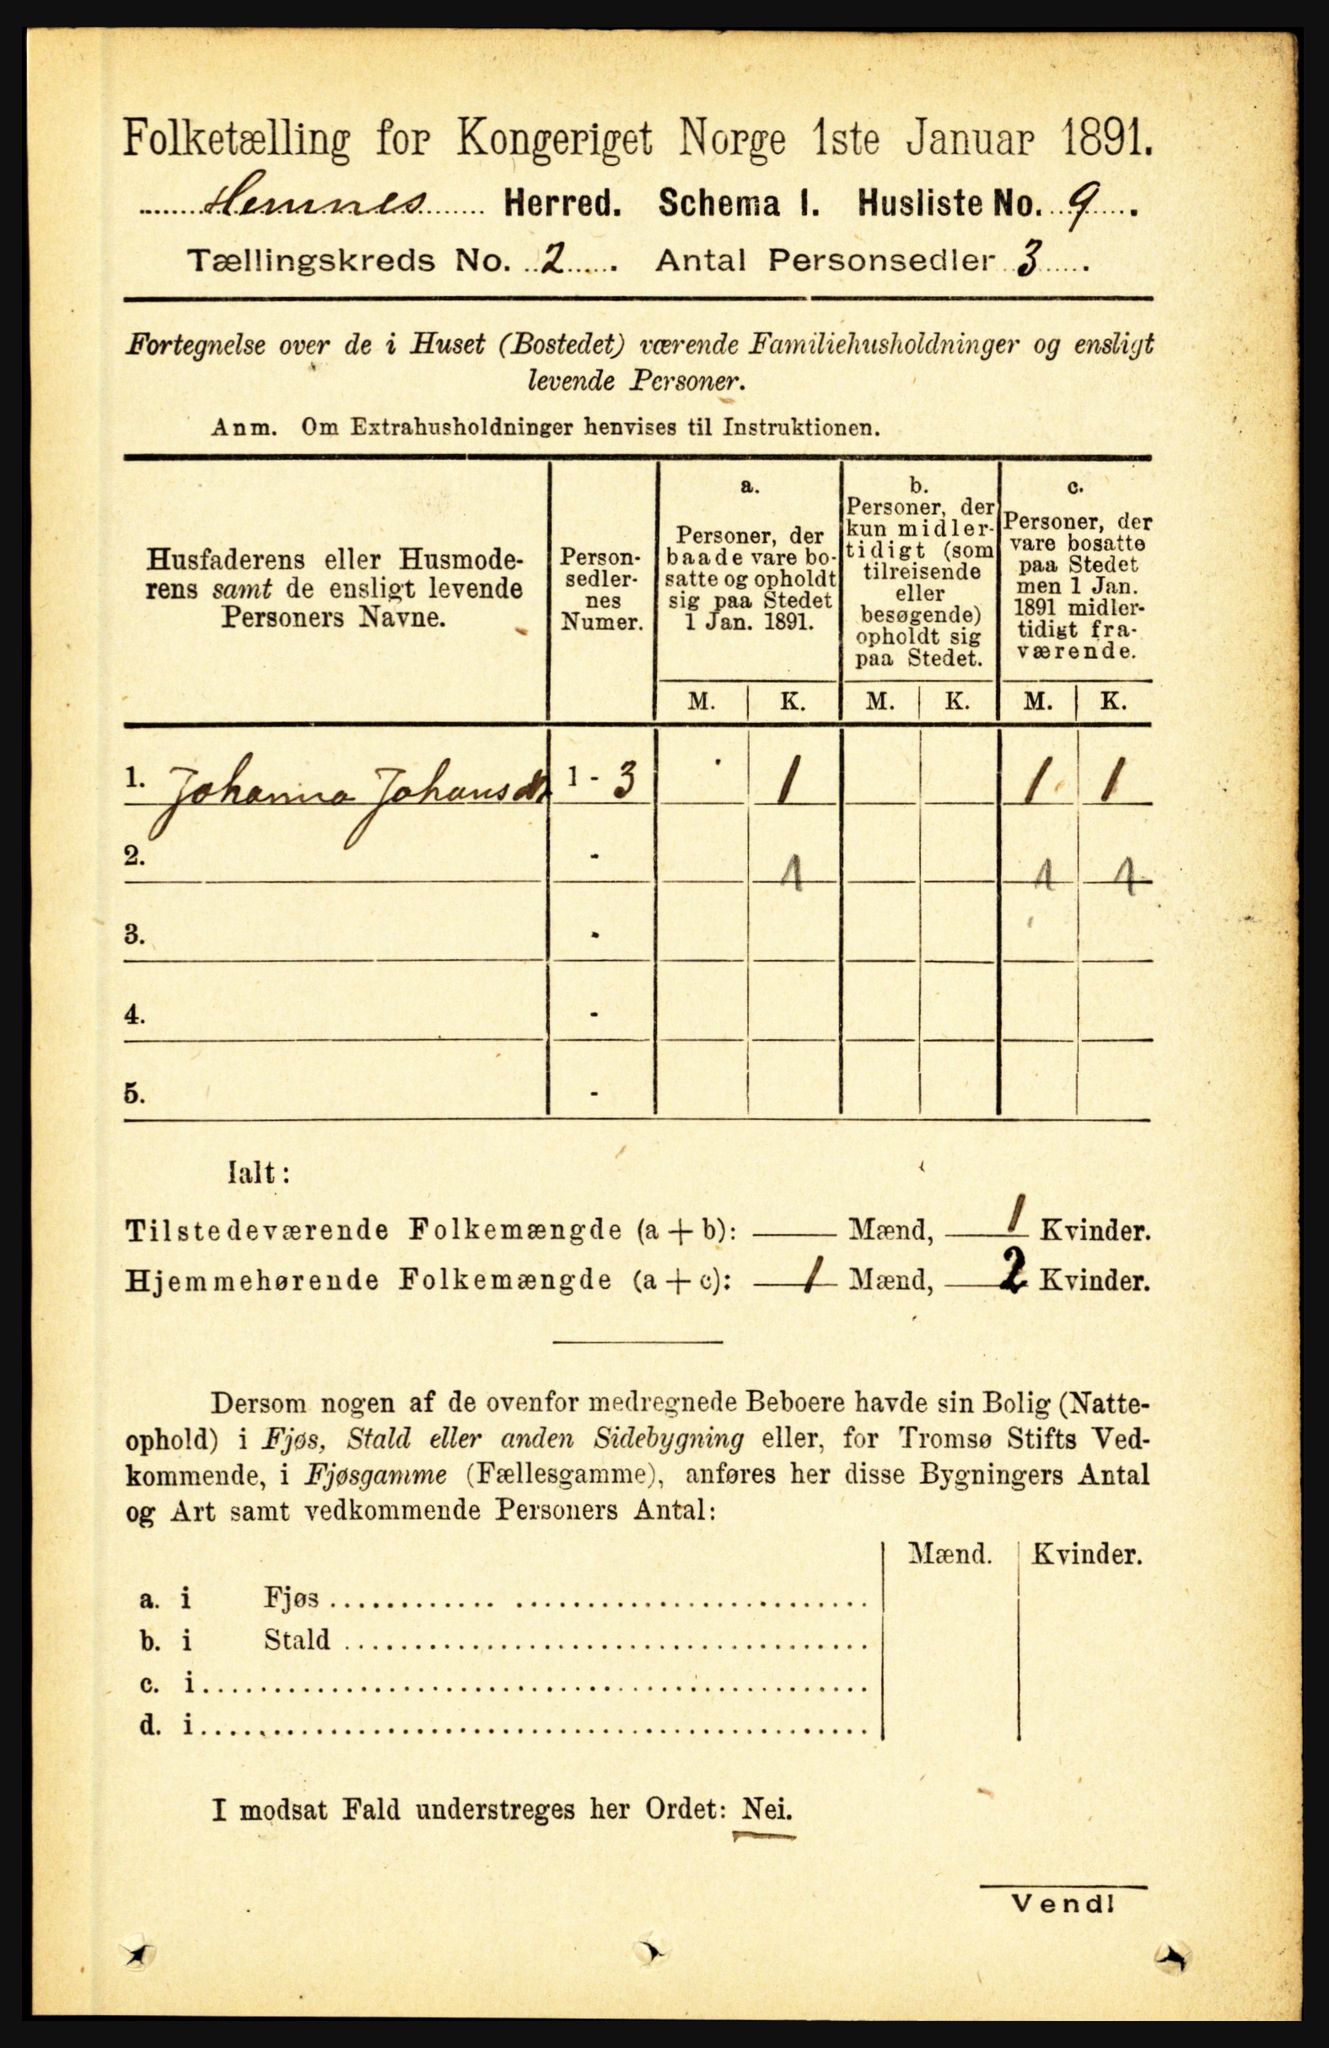 Folketælling for Kongeriget Norge 1ste Januar 1891.
Hemnes Herred. Schema I. Husliste No. 9.
Tællingskreds No. 2. Antal Personsedler 3.
Fortegnelse over de i Huset (Bostedet) værende Familiehusholdninger og ensligt
levende Personer.
Anm. Om Extrahusholdninger henvises til Instruktionen.
Husfaderens eller Husmode-
rens samt de ensligt levende
Personers Navne.
Person-
sedler-
nes
Numer.
a.
Personer, der
baade vare bo-
satte og opholdt
sig paa Stedet
1 Jan. 1891.
b.
Personer, der
kun midler-
tidigt (som
tilreisende
eller
besøgende)
opholdt sig
paa Stedet.
c.
Personer, der
vare bosatte
paa Stedet
men 1 Jan.
1891 midler-
tidigt fra-
værende.
M. K. M. K. M. K.
1. Johanna Johansdt 1 - 3 1 1 1
2. - 1 1 1
3. -
4. -
5. -
Ialt:
Tilstedeværende Folkemængde (a + b): Mænd, 1 Kvinder.
Hjemmehørende Folkemængde (a + c): 1 Mænd, 2 Kvinder.
Dersom nogen af de ovenfor medregnede Beboere havde sin Bolig (Natte-
ophold) i Fjøs, Stald eller anden Sidebygning eller, for Tromsø Stifts Ved-
kommende, i Fjøsgamme (Fællesgamme), anføres her disse Bygningers Antal
og Art samt vedkommende Personers Antal:
Mænd. Kvinder.
a. i Fjøs
b. i Stald
c. i
d. i
I modsat Fald understreges her Ordet: Nei.
Vend!